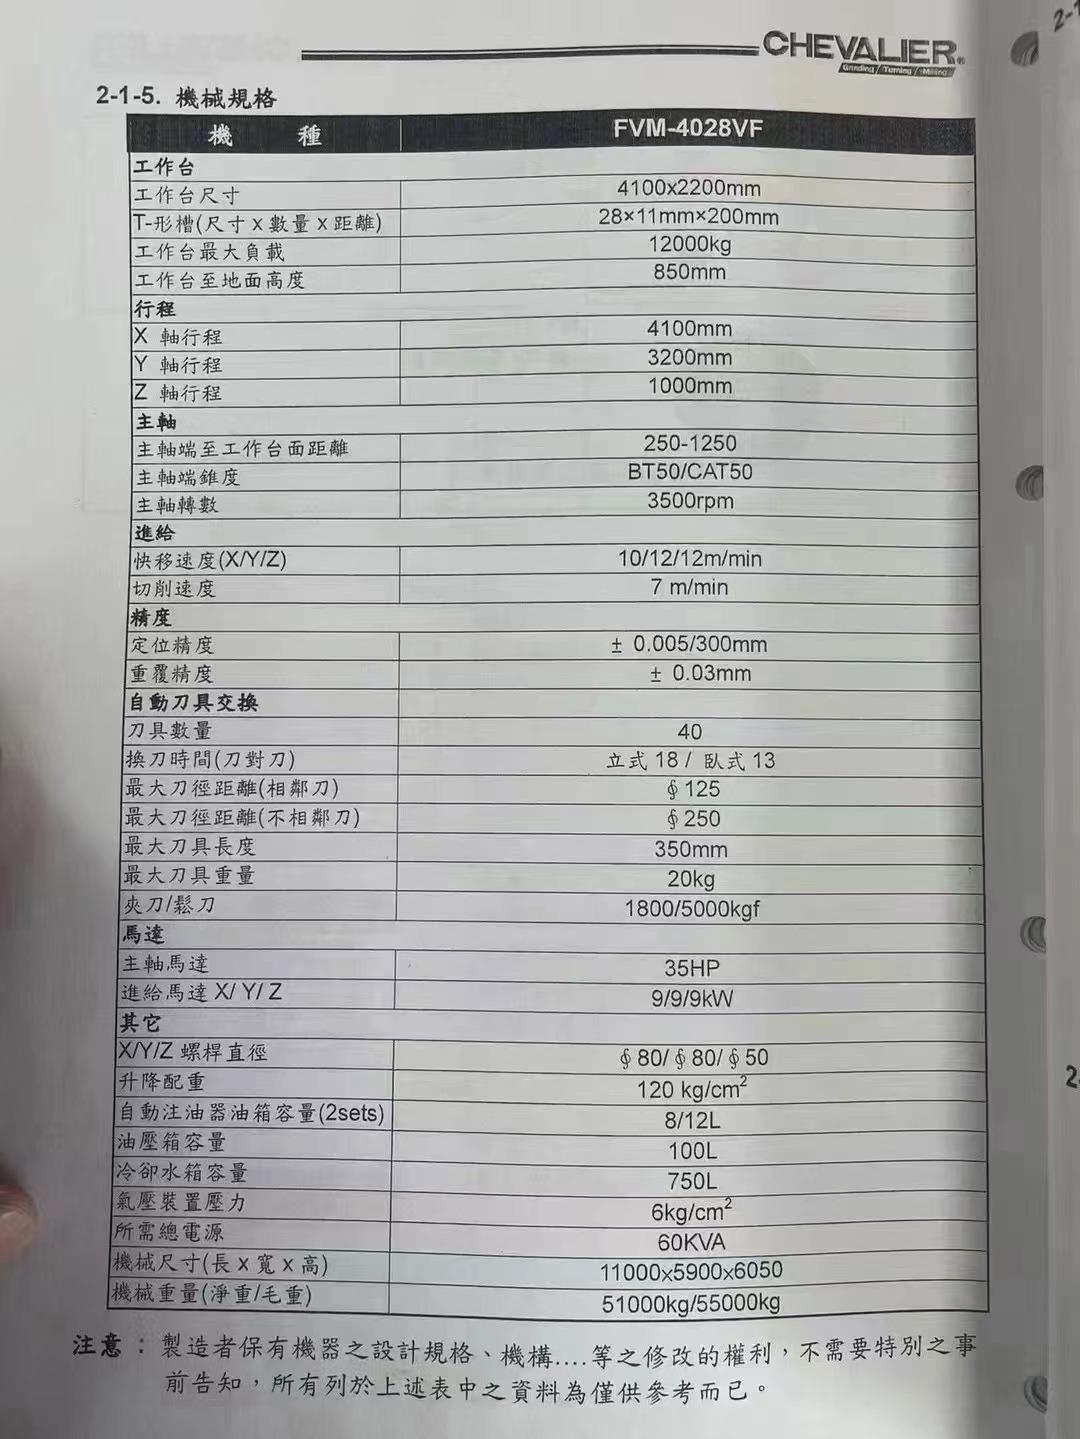 CHEVALIER®
Grinding / Turning / Milling
2-1-5. 機械規格
機 種 FVM-4028VF
工作台
工作台尺寸 4100x2200mm
T-形槽(尺寸 x 數量 x 距離) 28×11mm×200mm
工作台最大負載 12000kg
工作台至地面高度 850mm
行程
X 軸行程 4100mm
Y 軸行程 3200mm
Z 軸行程 1000mm
主軸
主軸端至工作台面距離 250-1250
主軸端錐度 BT50/CAT50
主軸轉數 3500rpm
進給
快移速度(X/Y/Z) 10/12/12m/min
切削速度 7 m/min
精度
定位精度 ± 0.005/300mm
重覆精度 ± 0.03mm
自動刀具交換
刀具數量 40
換刀時間(刀對刀) 立式 18 / 臥式 13
最大刀徑距離(相鄰刀) ∮125
最大刀徑距離(不相鄰刀) ∮250
最大刀具長度 350mm
最大刀具重量 20kg
夾刀/鬆刀 1800/5000kgf
馬達
主軸馬達 35HP
進給馬達 X/ Y/ Z 9/9/9kW
其它
X/Y/Z 螺桿直徑 ∮80/∮80/∮50
升降配重 120 kg/cm²
自動注油器油箱容量(2sets) 8/12L
油壓箱容量 100L
冷卻水箱容量 750L
氣壓裝置壓力 6kg/cm²
所需總電源 60KVA
機械尺寸(長 x 寬 x 高) 11000x5900x6050
機械重量(淨重/毛重) 51000kg/55000kg
注意 : 製造者保有機器之設計規格、機構....等之修改的權利,不需要特別之事
前告知,所有列於上述表中之資料為僅供參考而已。